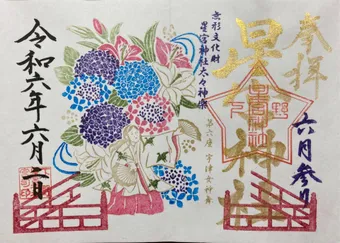 奉拝
星宮神社
六月参り
無形文化財
星宮神社太々神楽
第六座 宇津女神舞
令和六年六月二日